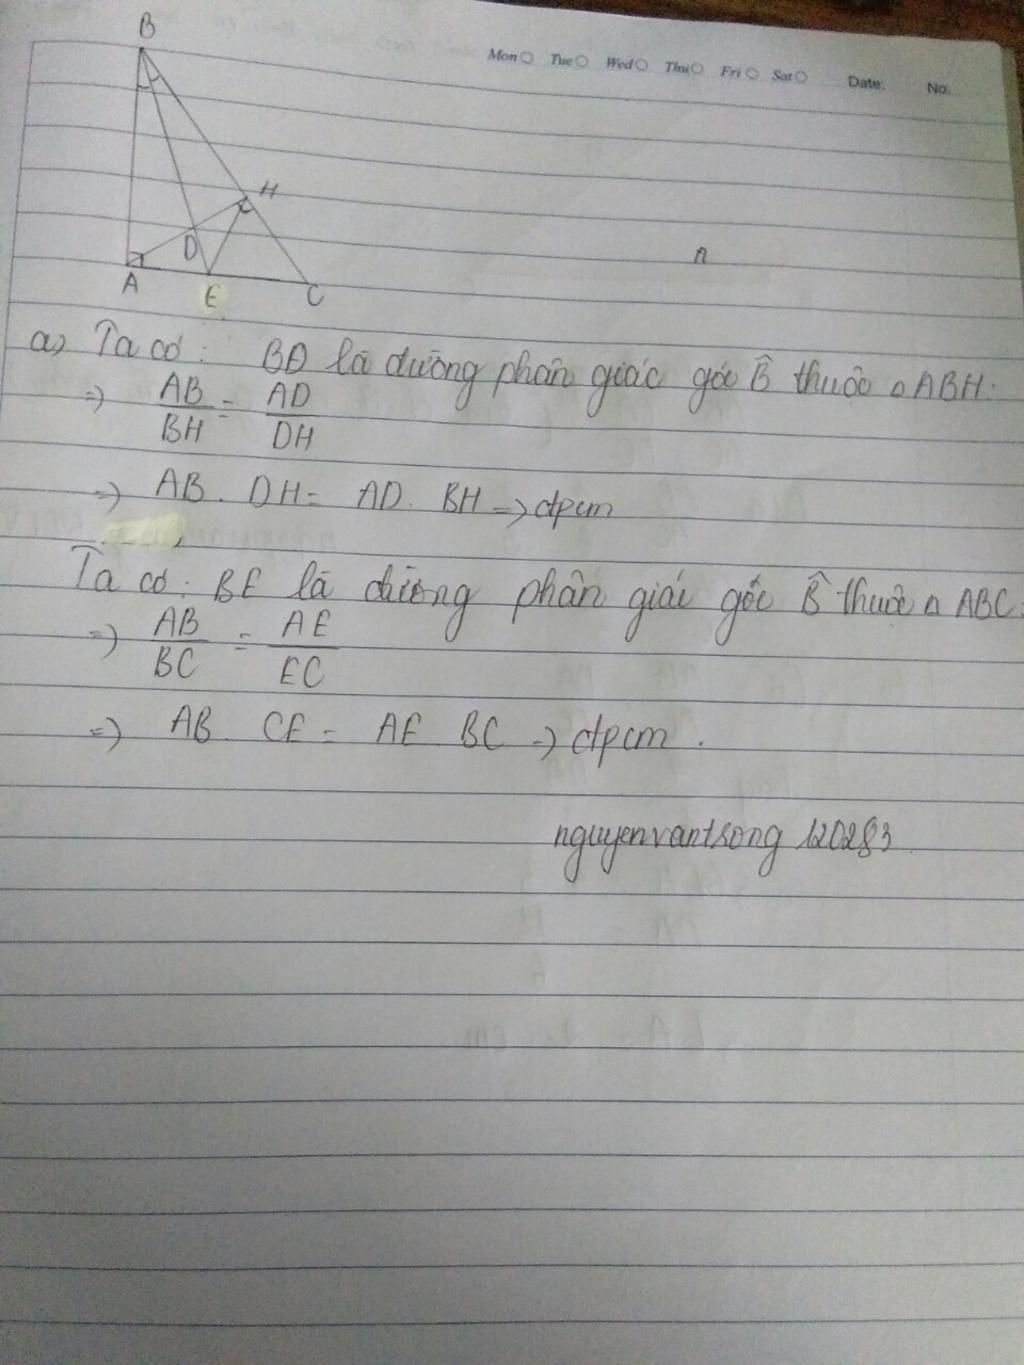 B
Mon Tue Wed Thu Fri Sat Date: No:
H
D
A
E
C
a) Ta có: BD là đường phân giác góc B̂ thuộc △ABH.
=> AB/BH = AD/DH
=> AB. DH = AD. BH => đpcm
Ta có: BE là đường phân giác góc B̂ thuộc △ABC.
=> AB/BC = AE/EC
=> AB CE = AE BC => đpcm.
nguyenvantsong 120283